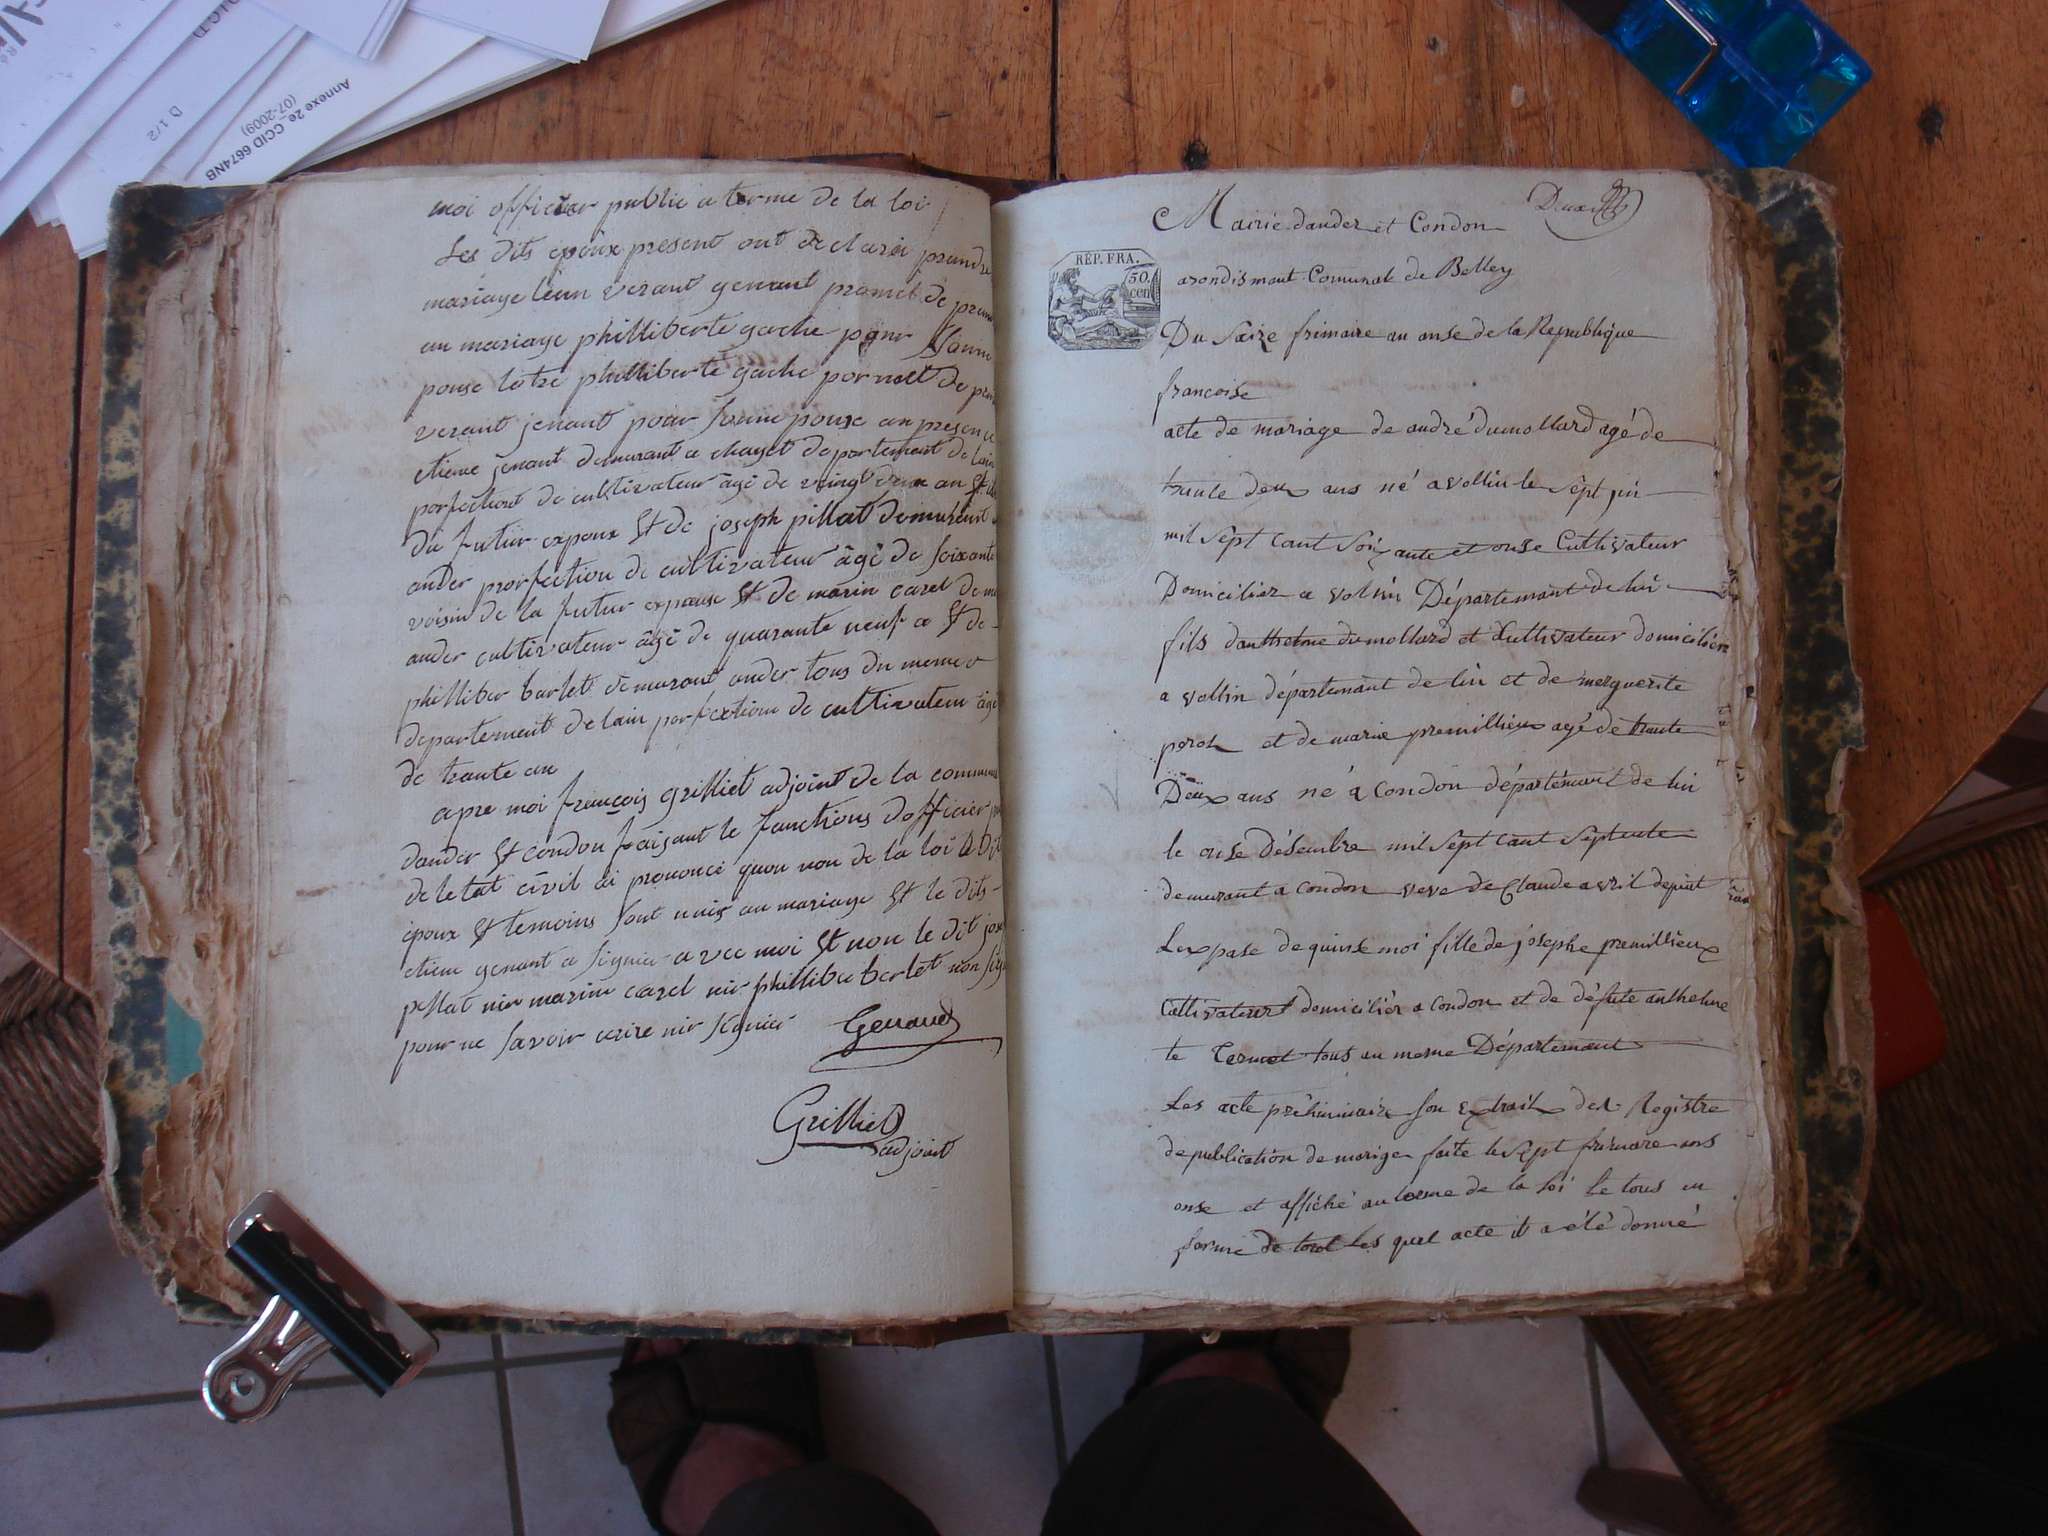 D 1/2
Annexe 2e_CCID 6674NB
(07-2009)
moi officier public a terme de la loi
Les dits epoux present ont declaréi prendre
mariage leun verant genant promet de pren
an mariage philliberte gache pour
pouse lotre philliberte gache pormet de pren
verant jenant pour pouse an presence
etiene jenant demurant a chayet departement de lain
porfection de cultivateur âgè de vingt deux an
du futur expoux et de joseph pillat demurant
ander prorfection de cultivateur âgè de soixante
voisin de la futur expouse et de marin carel demu
ander cultivateur âgè de quarante neuf a et de
philliber barlet demurant ander tous du meme
departement de lain porfection de cultivateur âgé
de trante an
apre moi françois grilliet adjoint de la commune
dander et condon faisant le fanctions dofficier
de letat civil ai prononcé quou non de la loi
epoux et temoins sont unis an mariage et le dits
etiene genant a signier avec moi et non le dit jose
pillat nir marin carel nir philliber berlet non
pour ne savoir ecrire nir signier Genand
Grilliet
adjoint
Mairie dander et Condon
RÉP. FRA.
50.
cen
arondismant Comunal de Belley
Du Saize frimaire an onse de la Republique
francoise
acte de mariage de andré dumollard agé de
trante deux ans né a vollin le sept
mil sept cant soixante et onse Cultivateur
Domicilier a vollin Département de lin
fils danthelme dumollard et Cultivateur domicilier
a vollin département de lin et de merguerite
peroz et de marie premillieux agé de trante
Deux ans né a Condon département de lin
le onse désembre mil sept cant septente
demurant a condon veve de Claude avril depiut
Lexpase de quinse moi fille de josephe premillieux
Cultivateur domicilier a condon et de défute anthelme
te Termet tous au meme Département
Les acte préliminaire son extrait der Registre
de publication de marige faite le sept frimare ans
onse et affiché au terme de la loi le tous en
forme de tout les quel acte il a été donné